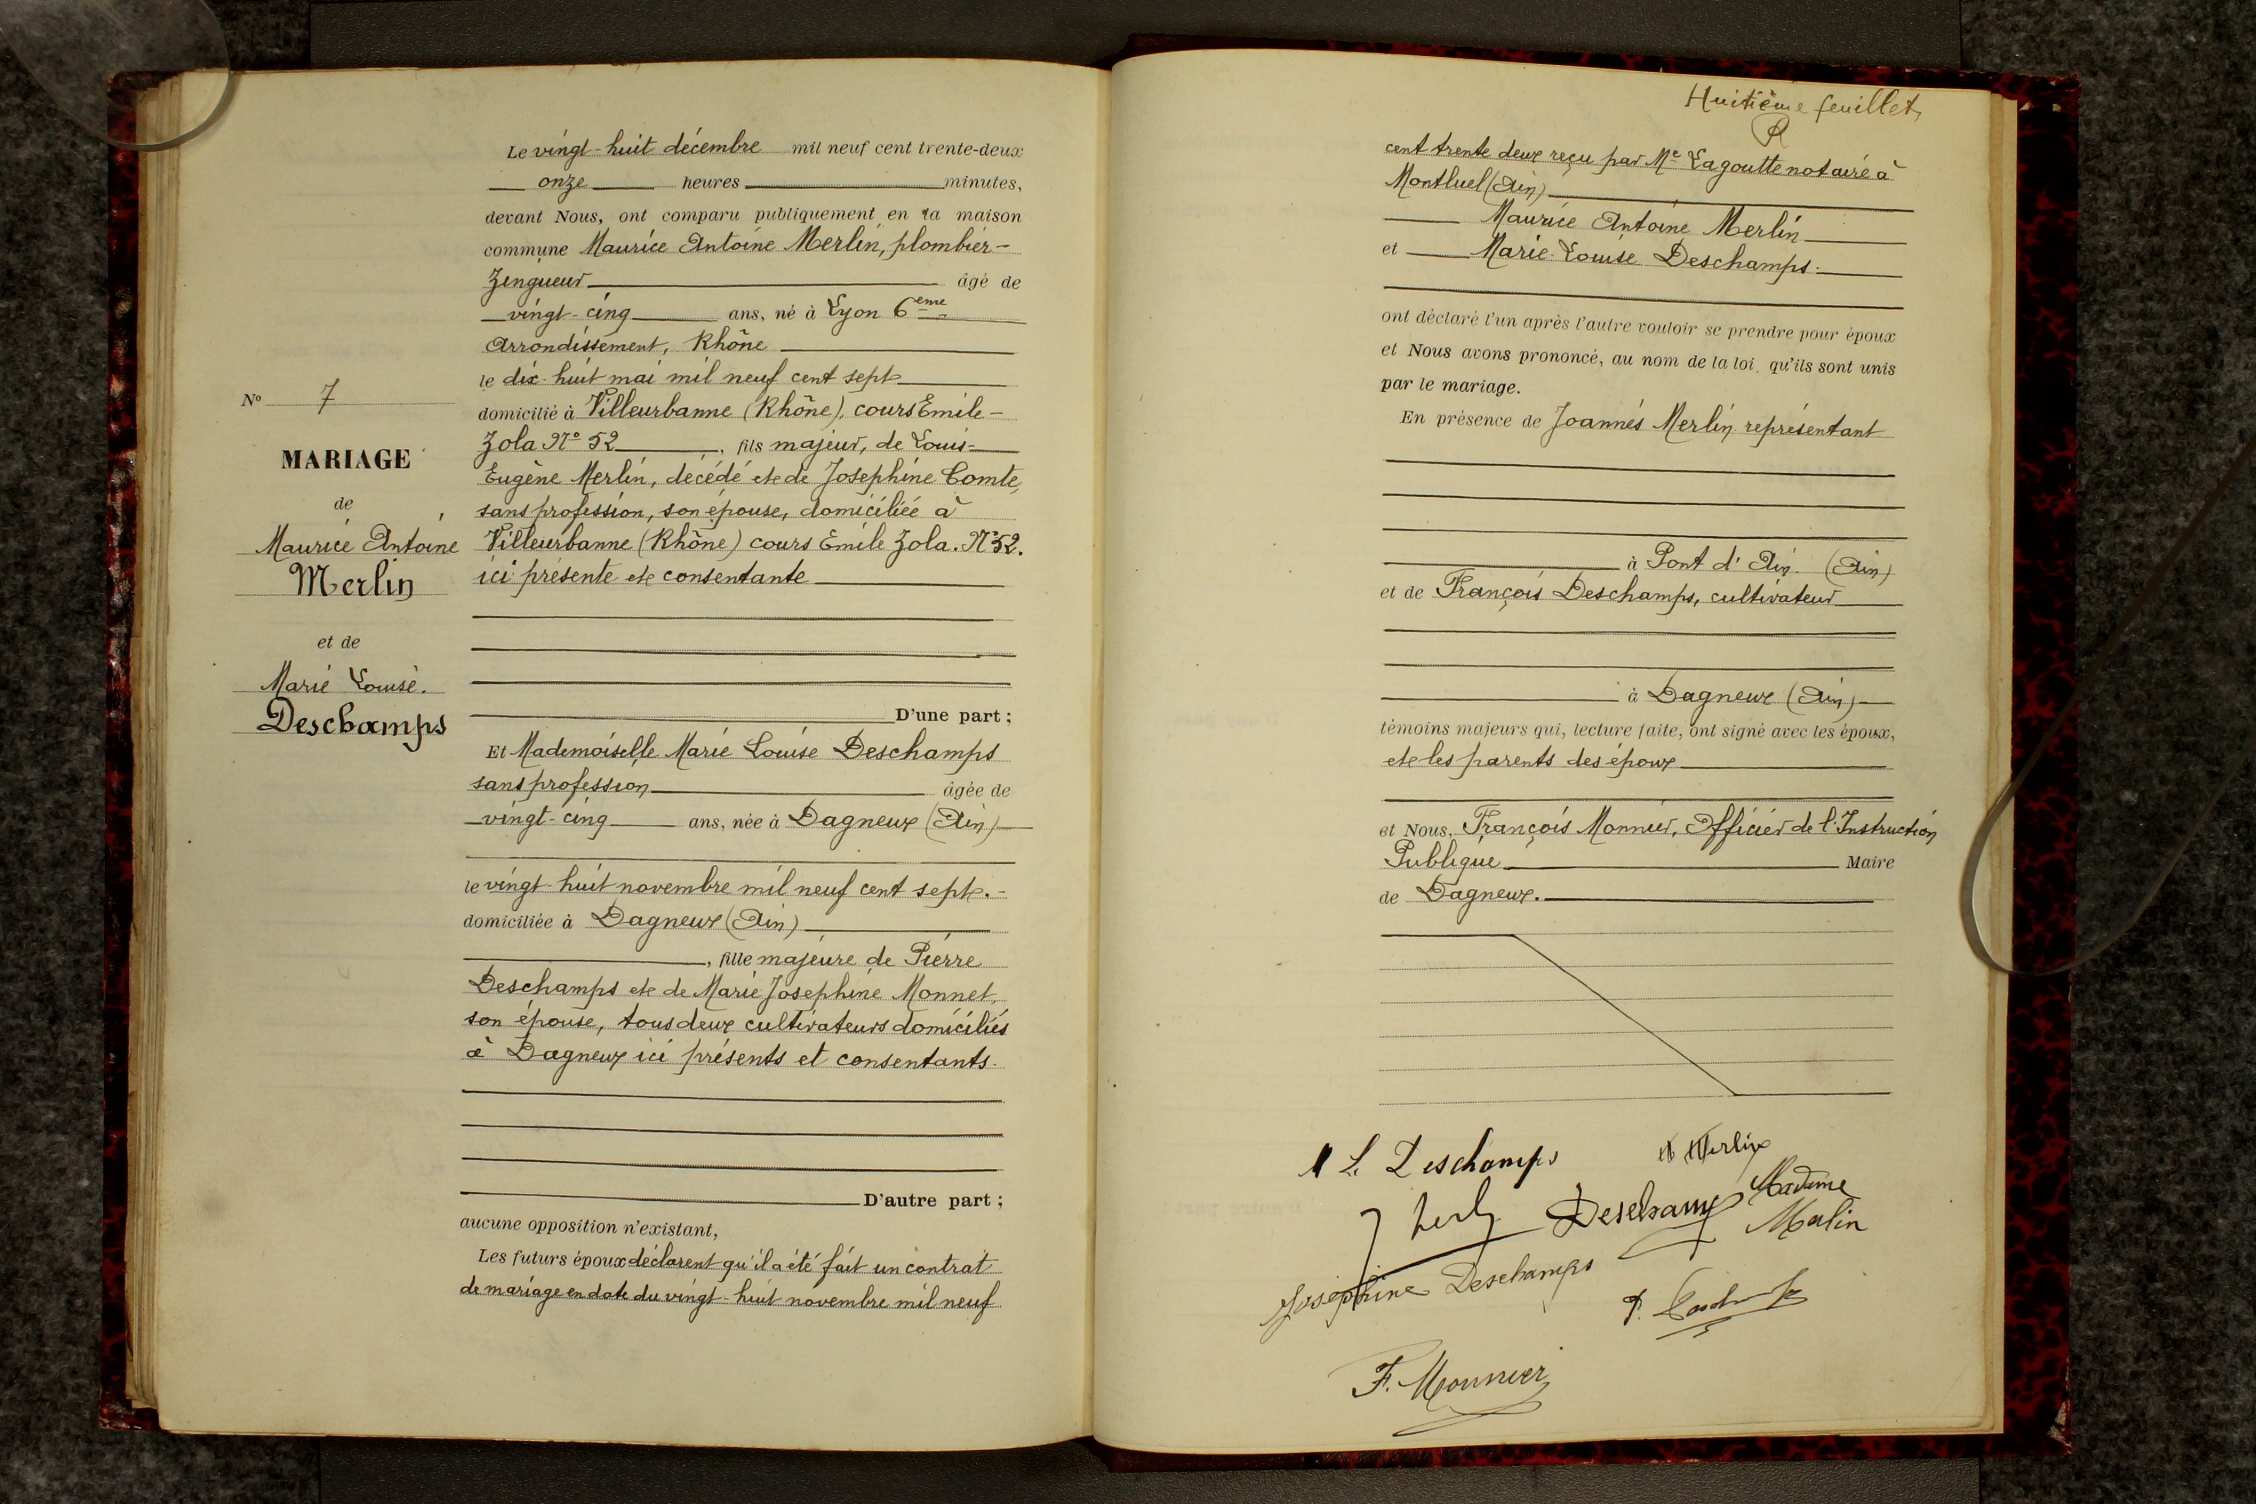 Le vingt-huit décembre mil neuf cent trente-deux
onze heures minutes,
devant Nous, ont comparu publiquement en la maison
commune Maurice Antoine Merlin, plombier-
Zingueur âgé de
vingt-cinq ans, né à Lyon 6ème
Arrondissement, Rhône
le dix-huit mai mil neuf cent sept
domicilié à Villeurbanne (Rhône), cours Emile-
Zola N° 52, fils majeur, de Louis-
Eugène Merlin, décédé et de Josephine Comte,
sans profession, son épouse, domiciliée à
Villeurbanne (Rhône) cours Emile Zola. N° 52.
ici présente et consentante
D'une part ;
Et Mademoiselle Marie Louise Deschamps
sans profession âgée de
vingt-cinq ans, née à Dagneux (Ain)
le vingt-huit novembre mil neuf cent sept.-
domiciliée à Dagneux (Ain)
, fille majeure de Pierre
Deschamps et de Marie Josephine Monnet,
son épouse, tous deux cultivateurs domiciliés
à Dagneux ici présents et consentants.
D'autre part ;
aucune opposition n'existant,
Les futurs époux déclarent qu'il a été fait un contrat
de mariage en date du vingt-huit novembre mil neuf
N° 7
MARIAGE
de
Maurice Antoine
Merlin
et de
Marie Louise.
Deschamps
Huitième feuillet,
cent trente deux reçu par Me Lagoutte notaire à
Montluel (Ain)
Maurice Antoine Merlin
et Marie-Louise Deschamps.
ont déclaré l'un après l'autre vouloir se prendre pour époux
et Nous avons prononcé, au nom de la loi, qu'ils sont unis
par le mariage.
En présence de Joannés Merlin représentant
à Pont d'Ain. (Ain)
et de François Deschamps, cultivateur
à Dagneux (Ain)
témoins majeurs qui, lecture faite, ont signé avec les époux,
et les parents des époux
et Nous, François Monnier, Officier de l'Instruction
Publique Maire
de Dagneux.
L Deschamps
Merlin
Deschamps
Madame
Merlin
Josephine Deschamps
F. Monnier